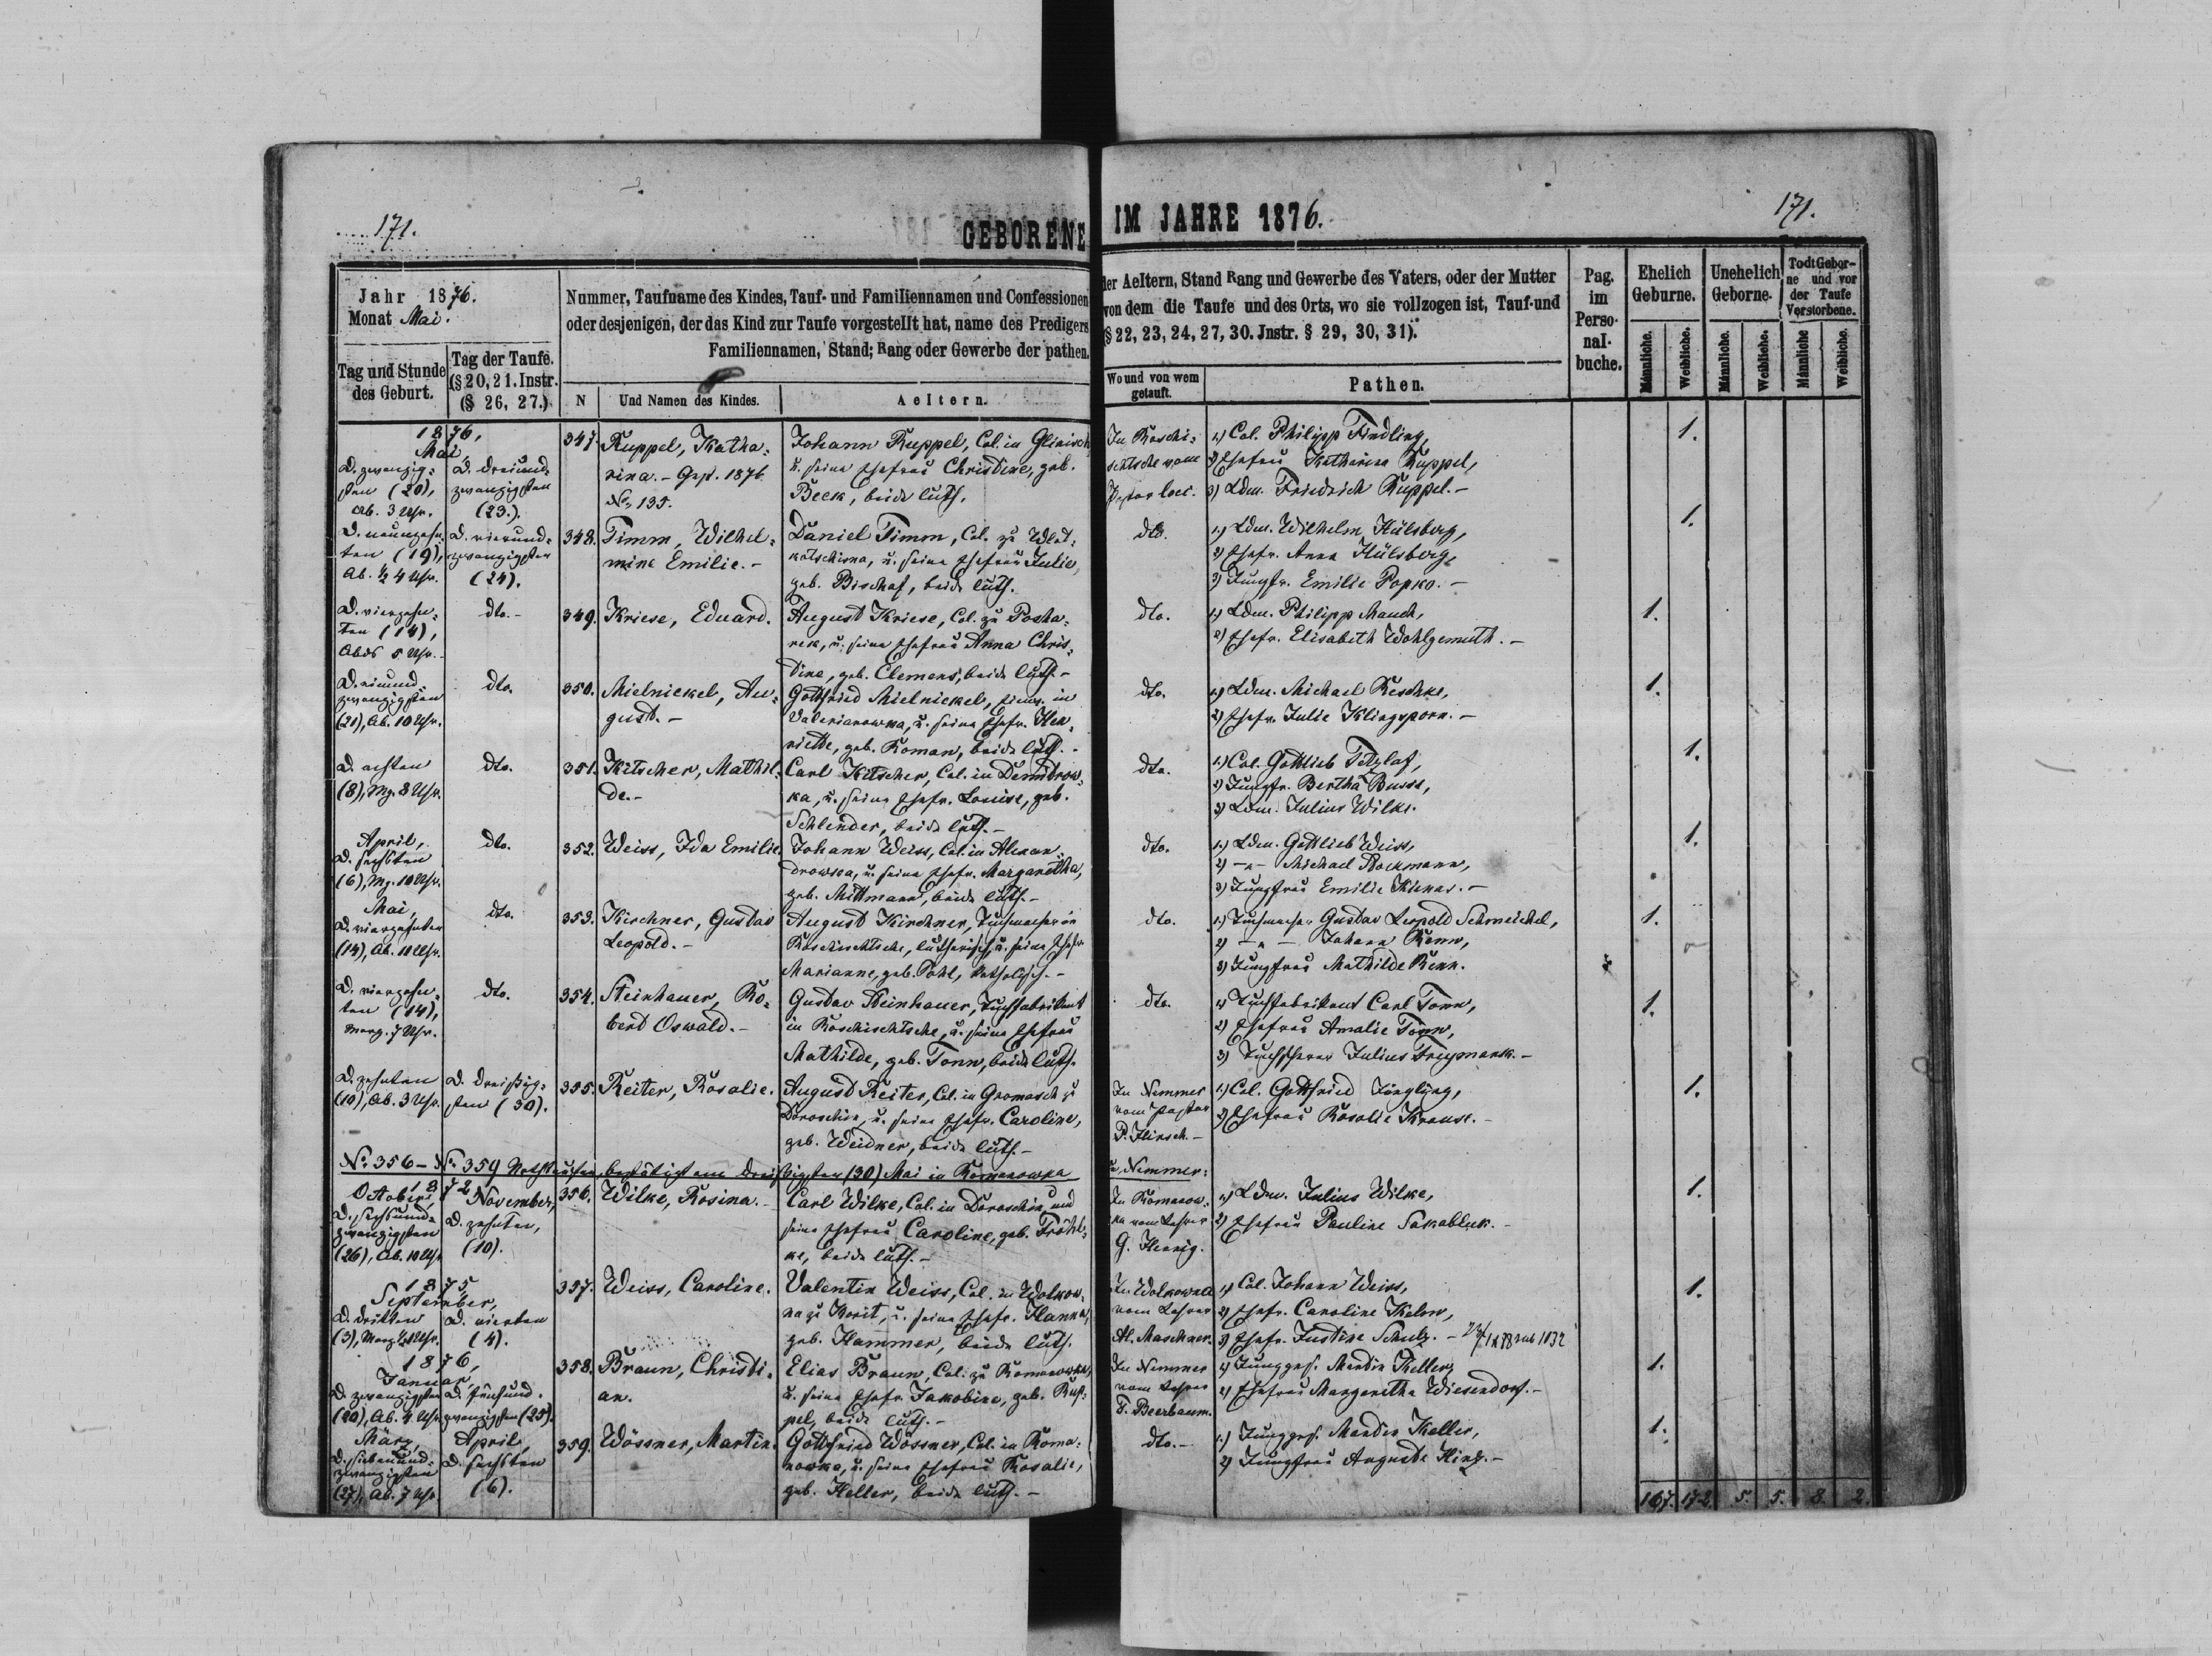 171.
GEBORENE
Jahr 1876.
Monat Mai.
Tag und Stunde
des Geburt.
Tag der Taufe.
(§ 20, 21. Instr.
(§ 26, 27.)
Nummer, Taufname des Kindes, Tauf- und Familiennamen und Confessionen
oder desjenigen, der das Kind zur Taufe vorgestellt hat, name des Predigers
Familiennamen, Stand; Rang oder Gewerbe der pathen.
N
Und Namen des Kindes.
Aeltern.
1876,
Mai,
D. zwanzig-
sten (20),
Ab. 3 Uhr.
D. dreiund-
zwanzigsten
(23.).
347.
Ruppel, Katha-
rina. - Gest. 1876
No 135.
Johann Ruppel, Col. in Glinisch
u. seine Ehefrau Christine, geb.
Beck, beide luth.
D. neunzehn-
ten (19),
Ab. ½ 4 Uhr.
D. vierund-
zwanzigsten
(24).
348.
Timm, Wilhel-
mine Emilie. -
Daniel Timm, Col. zu Wlat-
katschisna, u. seine Ehefrau Julie,
geb. Bischof, beide luth.
D. vierzehn-
ten (14),
Abds 5 Uhr. -
dto. -
349.
Kriese, Eduard.
August Kriese, Col. zu Posha-
rek, u. seine Ehefrau Anna Chris-
tine, geb. Clemens, beide luth. -
D. einund-
zwanzigsten
(21), Ab. 10 Uhr.
dto.
350.
Mielnickel, Au-
gust. -
Gottfried Mielnickel, in
Valerianowka, u. seine Ehefr. Hen-
riette, geb. Roman, beide luth. -
D. achten
(8), Mg. 8 Uhr.
dto.
351.
Kitscher, Mathil-
de. -
Carl Kitscher, Col. in Demitrow-
ka, u. seine Ehefr. Louise, geb.
Schlender, beide luth. -
April,
D. sechsten
(6), Mg. 10 Uhr.
dto.
352.
Weiss, Ida Emilie
Johann Weiss, Col. in Alexan-
drowka, u. seine Ehefr. Margaretha,
geb. Mittmann, beide luth. -
Mai,
D. vierzehnten
(14), Ab. 11 Uhr.
dto.
353.
Kirschner, Gustav
Leopold. -
August Kirschner, Tuchmacher in
Roschischtsche, lutherisch, u. seine Ehefr.
Marianne, geb. Pohl, katholisch. -
D. vierzehn-
ten (14),
Morg. 7 Uhr.
dto.
354.
Steinhauer, Ro-
bert Oswald. -
Gustav Steinhauer, Tuchfabrikant
in Roschischtsche, u. seine Ehefrau
Mathilde, geb. Tonn, beide luth.
D. zehnten
(10), Ab. 3 Uhr.
D. dreißig-
sten (30).
355.
Reiter, Rosalie.
August Reiter, Col. in Gromasch zu
Doroschin, u. seine Ehefr. Caroline,
geb. Weidner, beide luth. -
No 356 - No 359 Nothtaufen, bestätigt am dreißigsten (30) Mai in Romanowka
1872
October,
D. sechsund-
zwanzigsten
(26), Ab. 10 Uhr
November,
D. zehnten,
(10).
356.
Wilke, Rosina. -
Carl Wilke, Col. in Doroschin, und
seine Ehefrau Caroline, geb. Fröhl-
ke, beide luth. -
1875,
September,
D. dritten
(3), Morg. Uhr.
D. vierten
(4).
357.
Weiss, Caroline.
Valentin Weiss, Col. in Wolkow-
na zu Korit, u. seine Ehefr. Hanna,
geb. Hammer, beide luth.
1876,
Januar,
D. zwanzigsten
(20), Ab. 4 Uhr
D. fünfund-
zwanzigsten (25).
358.
Braun, Christi-
an.
Elias Braun, Col. zu Romanowka,
u. seine Ehefr. Jakobine, geb. Rup-
pel, beide luth. -
März,
D. siebenund-
zwanzigsten
(27), Ab. 7 Uhr.
April,
D. sechsten
(6).
359.
Wössner, Martin.
Gottfried Wössner, Col. in Roma-
nowka, u. seine Ehefrau Rosalie,
geb. Heller, beide luth. -
171.
IM JAHRE 1876.
der Aeltern, Stand Rang und Gewerbe des Vaters, oder der Mutter
von dem die Taufe und des Orts, wo sie vollzogen ist, Tauf-und
§ 22, 23, 24, 27, 30. Jnstr. § 29, 30, 31).
Wo und von wem
getauft.
Pathen.
Pag.
im
Perso-
nal-
buche.
Ehelich
Geburne.
Unehelich
Geborne.
Todt Gebor-
ne und vor
der Taufe
Verstorbene.
Männliche.
Weibliche.
Männliche.
Weibliche.
Männliche
Weibliche.
In Roschi-
schtsche vom
Pastor loci.
1.) Col. Philipp Findling,
2) Ehefrau Katharina Ruppel,
3) Ldm. Friedrich Ruppel. -
1.
dto.
1.) Ldm. Wilhelm Hülsberg,
2) Ehefr. Anna Hülsberg,
3) Jungfr. Emilie Popko. -
1.
dto.
1.) Ldm. Philipp Mauch,
2) Ehefr. Elisabeth Wohlgemuth. -
1.
dto.
1.) Ldm. Michael Reschke,
2) Ehefr. Julie Klingsporn. -
1.
dto.
1.) Col. Gottlieb Tetzlaf,
2) Jungfr. Bertha Busss,
3) Ldm. Julius Wilke.
1.
dto.
1.) Ldm. Gottlieb Weiss,
2) -"- Michael Bockmann,
3) Jungfrau Emilie Kienas. -
1.
dto.
1.) Tuchmacher Gustav Leopold Schmeichel,
2) -"- Johann Renn,
3) Jungfrau Mathilde Renn.
1.
dto.
1) Tuchfabrikant Carl Tonn,
2) Ehefrau Amalie Tonn,
3) Tuchscherer Julius Freymark. -
1.
In Nemmer
vom Pastor
P. Hirsch. -
1.) Col. Gottfried Jüngling,
2) Ehefrau Rosalie Krause. -
1.
u. Nemmer:
In Romanow-
ka vom Lehrer
G. Hennig.
1.) Ldm. Julius Wilke,
2) Ehefrau Pauline Sakabluk. -
1.
In Wolkowna
vom Lehrer
Al. Maschner.
1) Col. Johann Weiss,
2) Ehefr. Caroline Kelm,
3) Ehefr. Justine Schulz. -
1.
In Nemmer
vom Lehrer
F. Beerbaum.
1) Jungges. Martin Keller,
2) Ehefrau Margaretha Wiesendorf. -
1.
dto. -
1.) Jungges. Martin Keller,
2) Jungfrau Auguste Hinz. -
1.
167. 172. 5. 5. 8. 2.